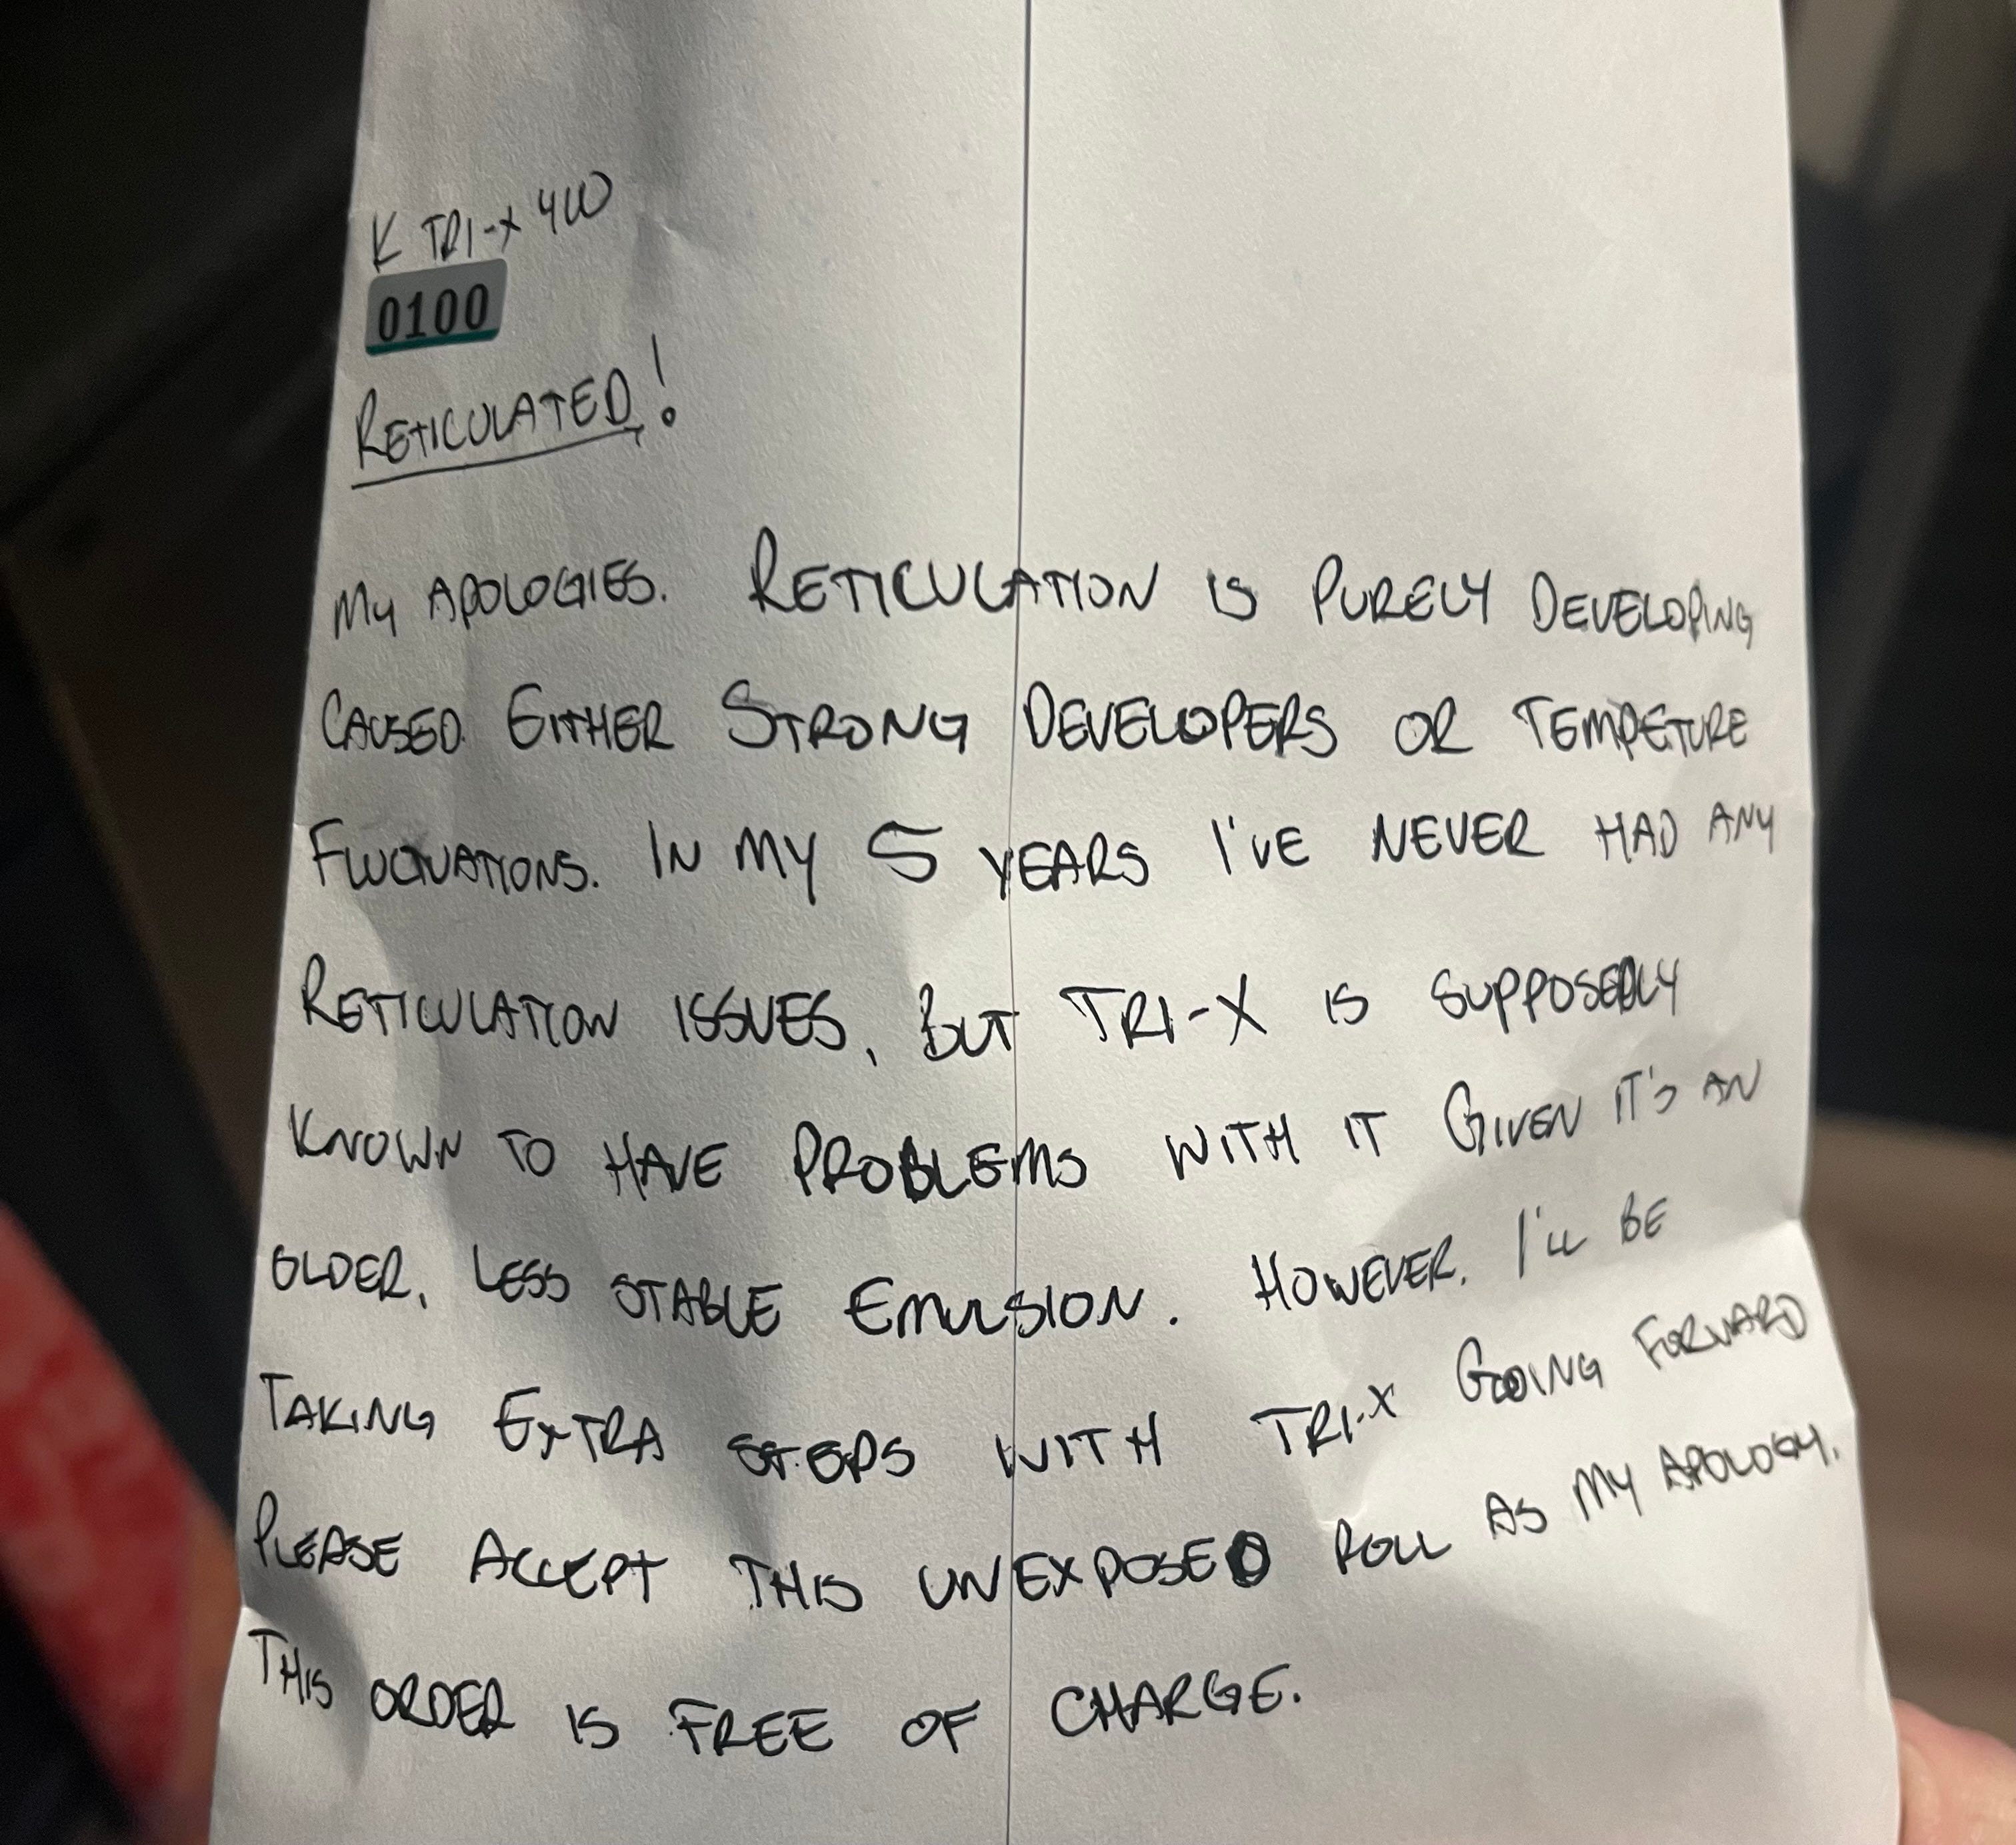 K TRI-X 400
0100
RETICULATED!
MY APOLOGIES. RETICULATION IS PURELY DEVELOPING
CAUSED. EITHER STRONG DEVELOPERS OR TEMPETURE
FLUCTUATIONS. IN MY 5 YEARS I'VE NEVER HAD ANY
RETICULATION ISSUES, BUT TRI-X IS SUPPOSEDLY
KNOWN TO HAVE PROBLEMS WITH IT GIVEN IT'S AN
OLDER, LESS STABLE EMULSION. HOWEVER, I'LL BE
TAKING EXTRA STEPS WITH TRI-X GOING FORWARD
PLEASE ACCEPT THIS UNEXPOSED ROLL AS MY APOLOGY.
THIS ORDER IS FREE OF CHARGE.